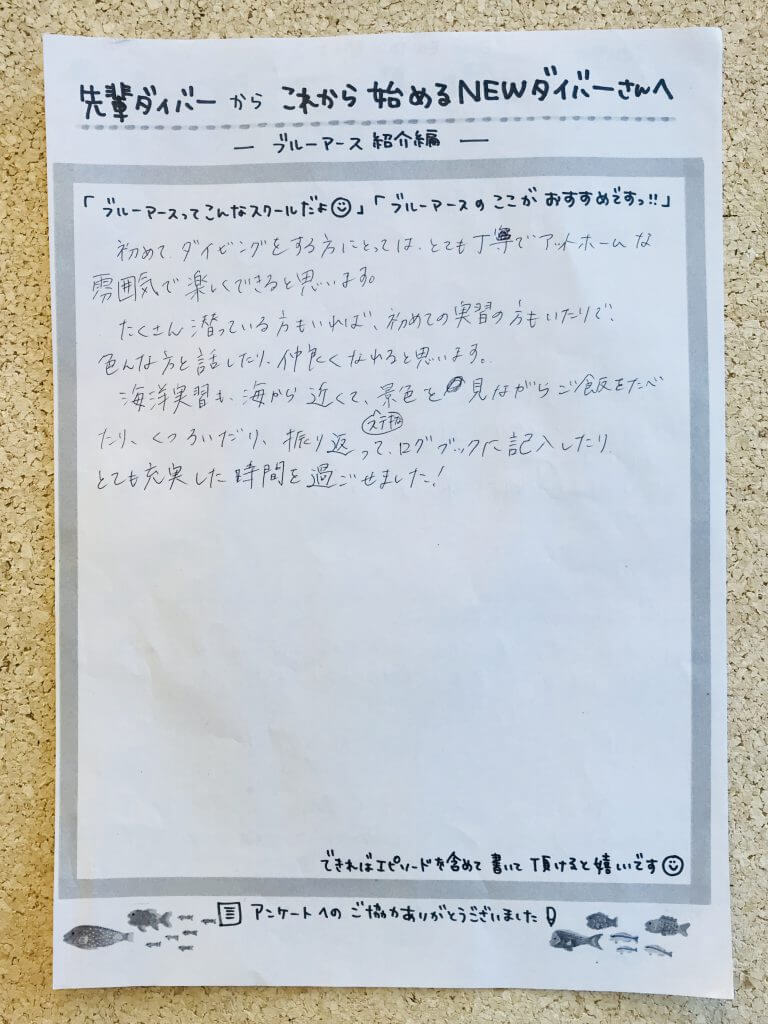 先輩ダイバーから これから始めるNEWダイバーさんへ
ー ブルーアース紹介編 ー
「ブルーアースってこんなスクールだよ☺」「ブルーアースのここがおすすめですっ!!」
初めて、ダイビングをする方にとっては、とても丁寧でアットホームな
雰囲気で楽しくできると思います。
たくさん潜っている方もいれば、初めての実習の方もいたりで、
色んな方と話したり、仲良くなれると思います。
海洋実習も、海から近くて、景色を見ながらご飯をたべ
たり、くつろいだり、振り返って、ログブックに記入したり
ステキな
とても充実した時間を過ごせました!
できればエピソードを含めて書いて頂けると嬉しいです☺
アンケートへのご協力ありがとうございました